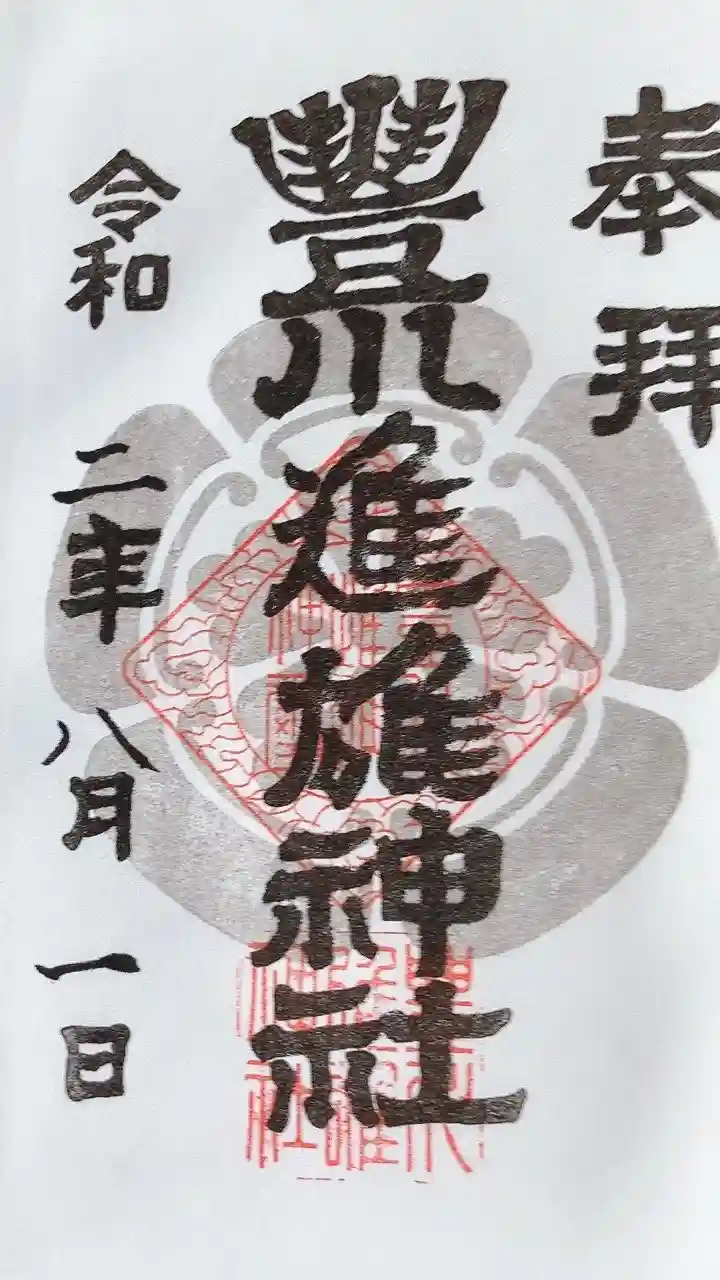 奉拝
豐川進雄神社
令和二年八月一日